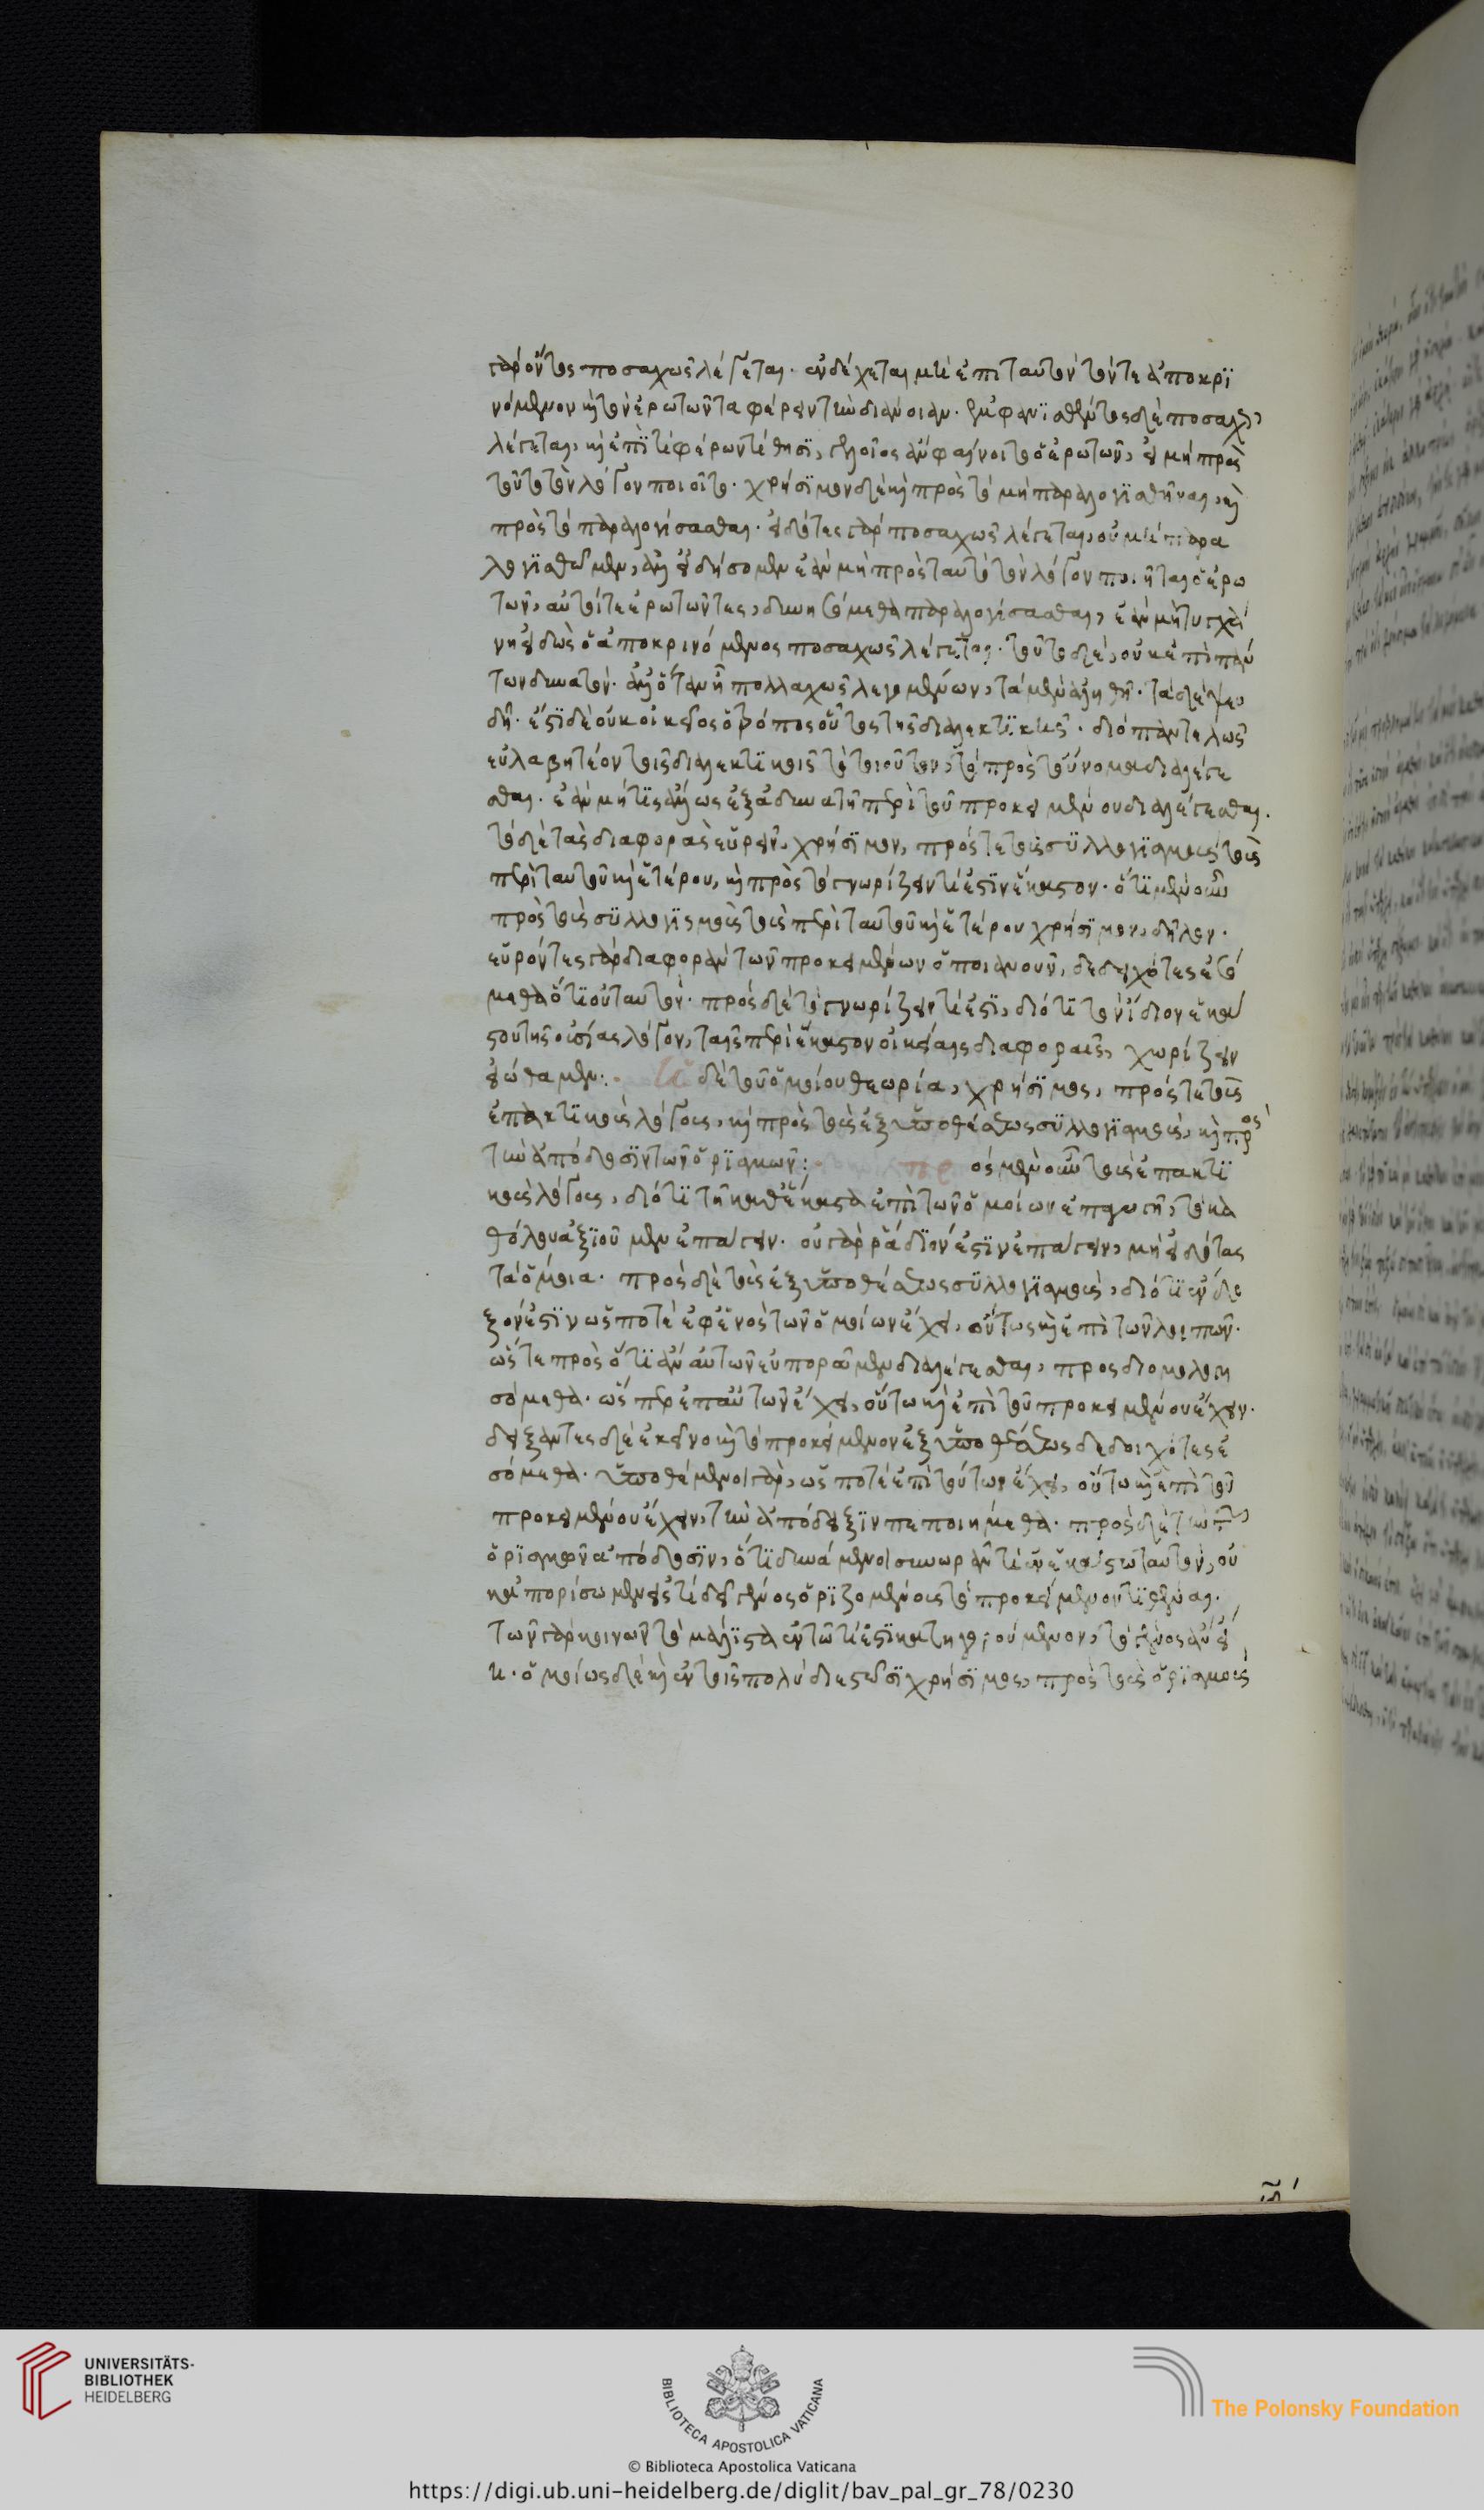 γὰρ ὄντος ποσαχῶς λέγεται. ἐνδέχεται μὴ ἐπὶ ταὐτὸν τόν τε ἀποκρι
νόμενον καὶ τὸν ἐρωτῶντα φέρειν τὴν διάνοιαν. ἐμφανισθέντος δὲ ποσαχῶς
λέγεται, καὶ ἐπὶ τί φέρων τίθησι, γελοῖος ἂν φαίνοιτο ὁ ἐρωτῶν, εἰ μὴ πρὸς
τοῦτο τὸν λόγον ποιοῖτο. χρήσιμον δὲ καὶ πρὸς τὸ μὴ παραλογισθῆναι, καὶ
πρὸς τὸ παραλογίσασθαι. εἰδότες γὰρ ποσαχῶς λέγεται, οὐ μὴ παρα
λογισθῶμεν, ἀλλ' εἰδήσομεν ἐὰν μὴ πρὸς ταὐτὸ τὸν λόγον ποιῆται ὁ ἐρω
τῶν, αὐτοί τε ἐρωτῶντες, δυνησόμεθα παραλογίσασθαι, ἐὰν μὴ τυγχά
νη εἰδὼς ὁ ἀποκρινόμενος ποσαχῶς λέγεται. τοῦτο δὲ, οὐκ ἐπὶ πάν
των δυνατόν. ἀλλ' ὅταν ᾖ πολλαχῶς λεγομένων, τὰ μὲν ἀληθῆ. τὰ δὲ ψευ
δῆ. ἔστι δὲ οὐκ οἰκεῖος ὁ τρόπος οὗτος τῆς διαλεκτικῆς. διὸ παντελῶς
εὐλαβητέον τοῖς διαλεκτικοῖς τὸ τοιοῦτον, τὸ πρὸς τοὔνομα διαλέγε
σθαι. ἐὰν μή τις ἄλλως ἐξαδυνατῇ περὶ τοῦ προκειμένου διαλέγεσθαι.
τὸ δὲ τὰς διαφορὰς εὑρεῖν, χρήσιμον, πρός τε τοὺς συλλογισμοὺς τοὺς
περὶ ταυτοῦ καὶ ἑτέρου, καὶ πρὸς τὸ γνωρίζειν τί ἐστιν ἕκαστον. ὅτι μὲν οὖν
πρὸς τοὺς συλλογισμοὺς τοὺς περὶ ταυτοῦ καὶ ἑτέρου χρήσιμον, δῆλον.
εὑρόντες γὰρ διαφορὰν τῶν προκειμένων ὁποιανοῦν, δεδειχότες ἐσό
μεθα ὅτι οὐ ταὐτόν. πρὸς δὲ τὸ γνωρίζειν τί ἐστι, διότι τὸν ἴδιον ἑκά
στου τῆς οὐσίας λόγον, ταῖς περὶ ἕκαστον οἰκείαις διαφοραῖς, χωρίζειν
εἰώθαμεν: Ἡ δὲ τοῦ ὁμοίου θεωρία, χρήσιμος, πρός τε τοὺς
ἐπακτικοὺς λόγους, καὶ πρὸς τοὺς ἐξ ὑποθέσεως συλλογισμοὺς, καὶ πρὸς
τὴν ἀπόδοσιν τῶν ὁρισμῶν: πρὸς μὲν οὖν τοὺς ἐπακτι
κοὺς λόγους, διότι τῇ καθ' ἕκαστα ἐπὶ τῶν ὁμοίων ἐπαγωγῇ, τὸ κα
θόλου ἀξιοῦμεν ἐπάγειν. οὐ γὰρ ῥᾴδιόν ἐστιν ἐπάγειν, μὴ εἰδότας
τὰ ὅμοια. πρὸς δὲ τοὺς ἐξ ὑποθέσεως συλλογισμοὺς, διότι ἔνδο
ξόν ἐστιν ὥς ποτε ἐφ' ἑνὸς τῶν ὁμοίων ἔχει, οὕτως καὶ ἐπὶ τῶν λοιπῶν.
ὥστε πρὸς ὅτι ἂν αὐτῶν εὐπορῶμεν διαλέγεσθαι, προσδιομολογη
σόμεθα. ὥσπερ ἐπ' αὐτῶν ἔχει, οὕτω καὶ ἐπὶ τοῦ προκειμένου ἔχειν.
δείξαντες δὲ ἐκεῖνο καὶ τὸ προκείμενον ἐξ ὑποθέσεως δεδειχότες ἐ
σόμεθα. ὑποθέμενοι γὰρ, ὥς ποτε ἐπὶ τούτων ἔχει, οὕτω καὶ ἐπὶ τοῦ
προκειμένου ἔχειν, τὴν ἀπόδειξιν πεποιήμεθα. πρὸς δὲ τὴν τῶν
ὁρισμῶν ἀπόδοσιν, ὅτι δυνάμενοι συνορᾶν τί ἐν ἑκάστῳ ταὐτόν, οὐ
κ' ἀπορήσομεν εἰς τί δεῖ γένος ὁριζομένους τὸ προκείμενον τιθέναι.
τῶν γὰρ κοινῶν τὸ μάλιστα ἐν τῷ τί ἐστι κατηγορούμενον, τὸ γένος ἂν εἴ
η. ὁμοίως δὲ καὶ ἐν τοῖς πολὺ διεστῶσι χρήσιμος, πρὸς τοὺς ὁρισμοὺς
UNIVERSITÄTS-
BIBLIOTHEK
HEIDELBERG
BIBLIOTECA APOSTOLICA VATICANA
The Polonsky Foundation
© Biblioteca Apostolica Vaticana
https://digi.ub.uni-heidelberg.de/diglit/bav_pal_gr_78/0230